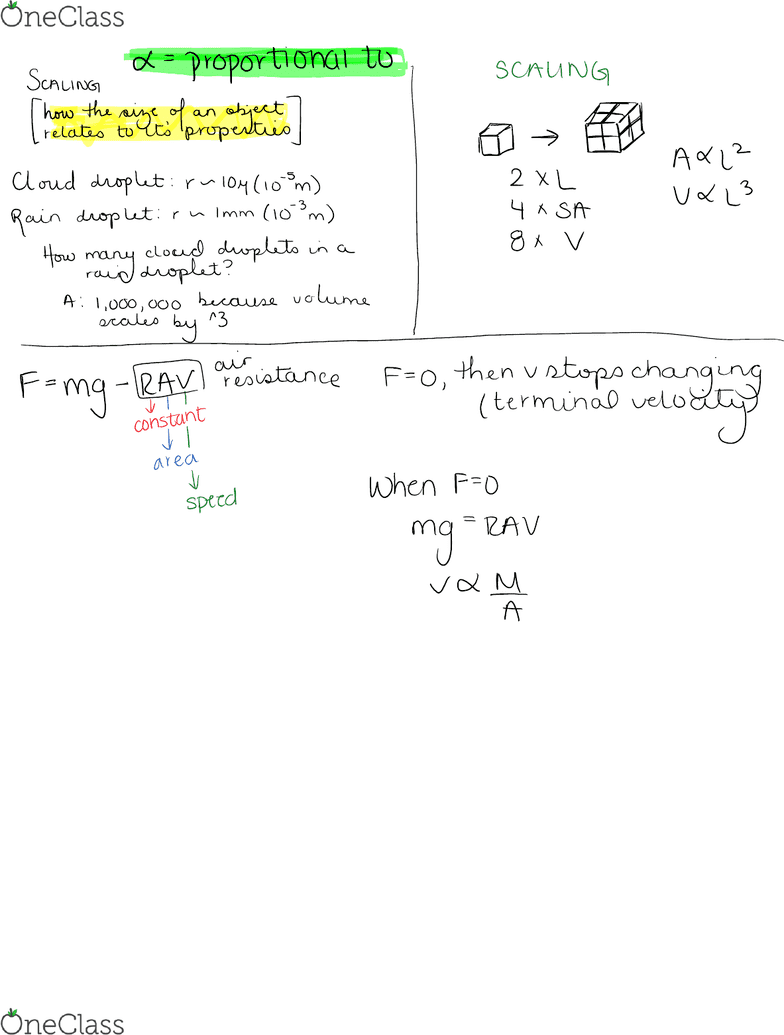 OneClass
α = proportional to
SCALING
how the size of an object
relates to it's properties
Cloud droplet: r ~ 10μ (10⁻⁵m)
Rain droplet: r ~ 1mm (10⁻³m)
How many cloud droplets in a
rain droplet?
A: 1,000,000 because volume
scales by ^3
SCALING
→
2 × L
4 × SA
8 × V
A ∝ L²
V ∝ L³
F = mg - RAV air
resistance
constant
area
speed
F=0, then v stops changing
(terminal velocity)
When F=0
mg = RAV
v ∝ M
A
OneClass